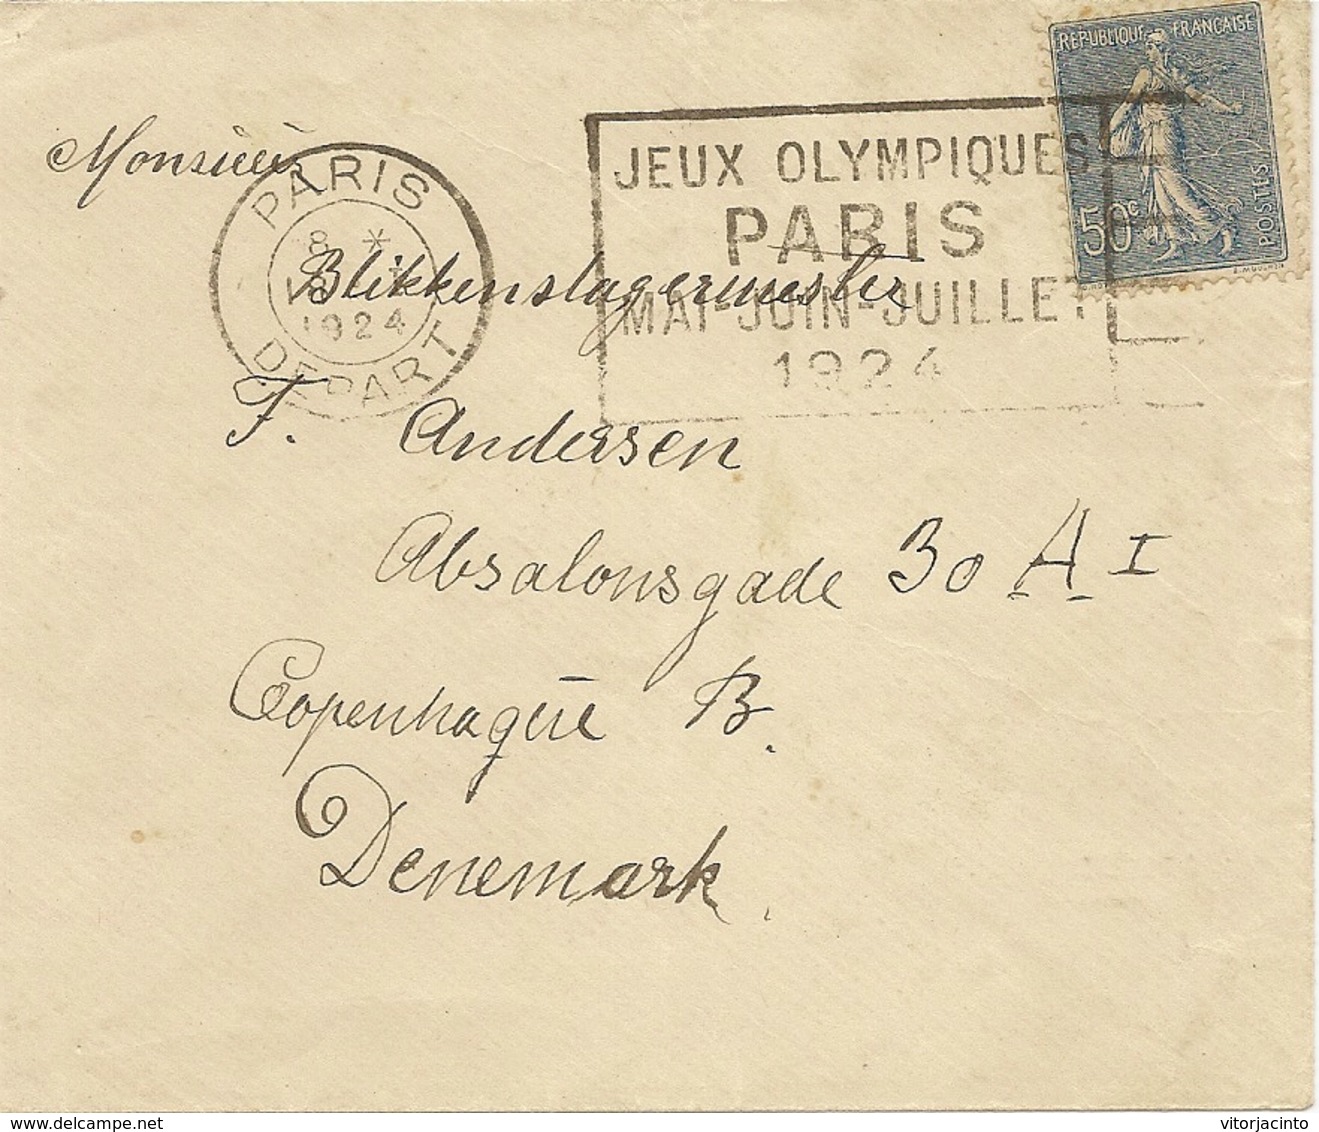 REPUBLIQUE FRANCAISE
50c
POSTES
JEUX OLYMPIQUES
PARIS
MAI-JUIN-JUILLET
1924
PARIS
8
1924
DEPART
Monsieur
Blikkenslagermester
F. Andersen
Absalonsgade 30 A I
Copenhague B.
Denemark.
www.delcampe.net
vitorjacinto